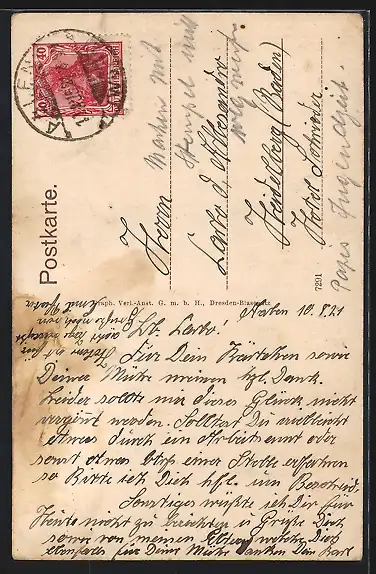 Postkarte.
Herrn
Lavbo d. Allesandro
Heidelberg (Baden)
Hotel Schrieder
Marken mit
Stempel will
Papas Jugendzeit.
7291
Graph. Verl.-Anst. G. m. b. H., Dresden-Blasewitz
Aalen 10.8.21
Lb. Lavbo!
Für Dein Kärtchen sowie
Deiner Mühe meinen hzl. Dank.
Leider sollte mir dieses Glück nicht
vergönnt werden. Solltest Du vielleicht
etwas durch ein Arbeitsamt oder
sonst etwas betr. einer Stelle erfahren
so bitte ich Dich hfl. um Bescheid.
Sonstiges wüßte ich Dir für
Heute nicht zu berichten u. Grüße Dich
sowie von meinen Eltern welche Dich
ebenfalls für Deine Mühe danken Dein Karl